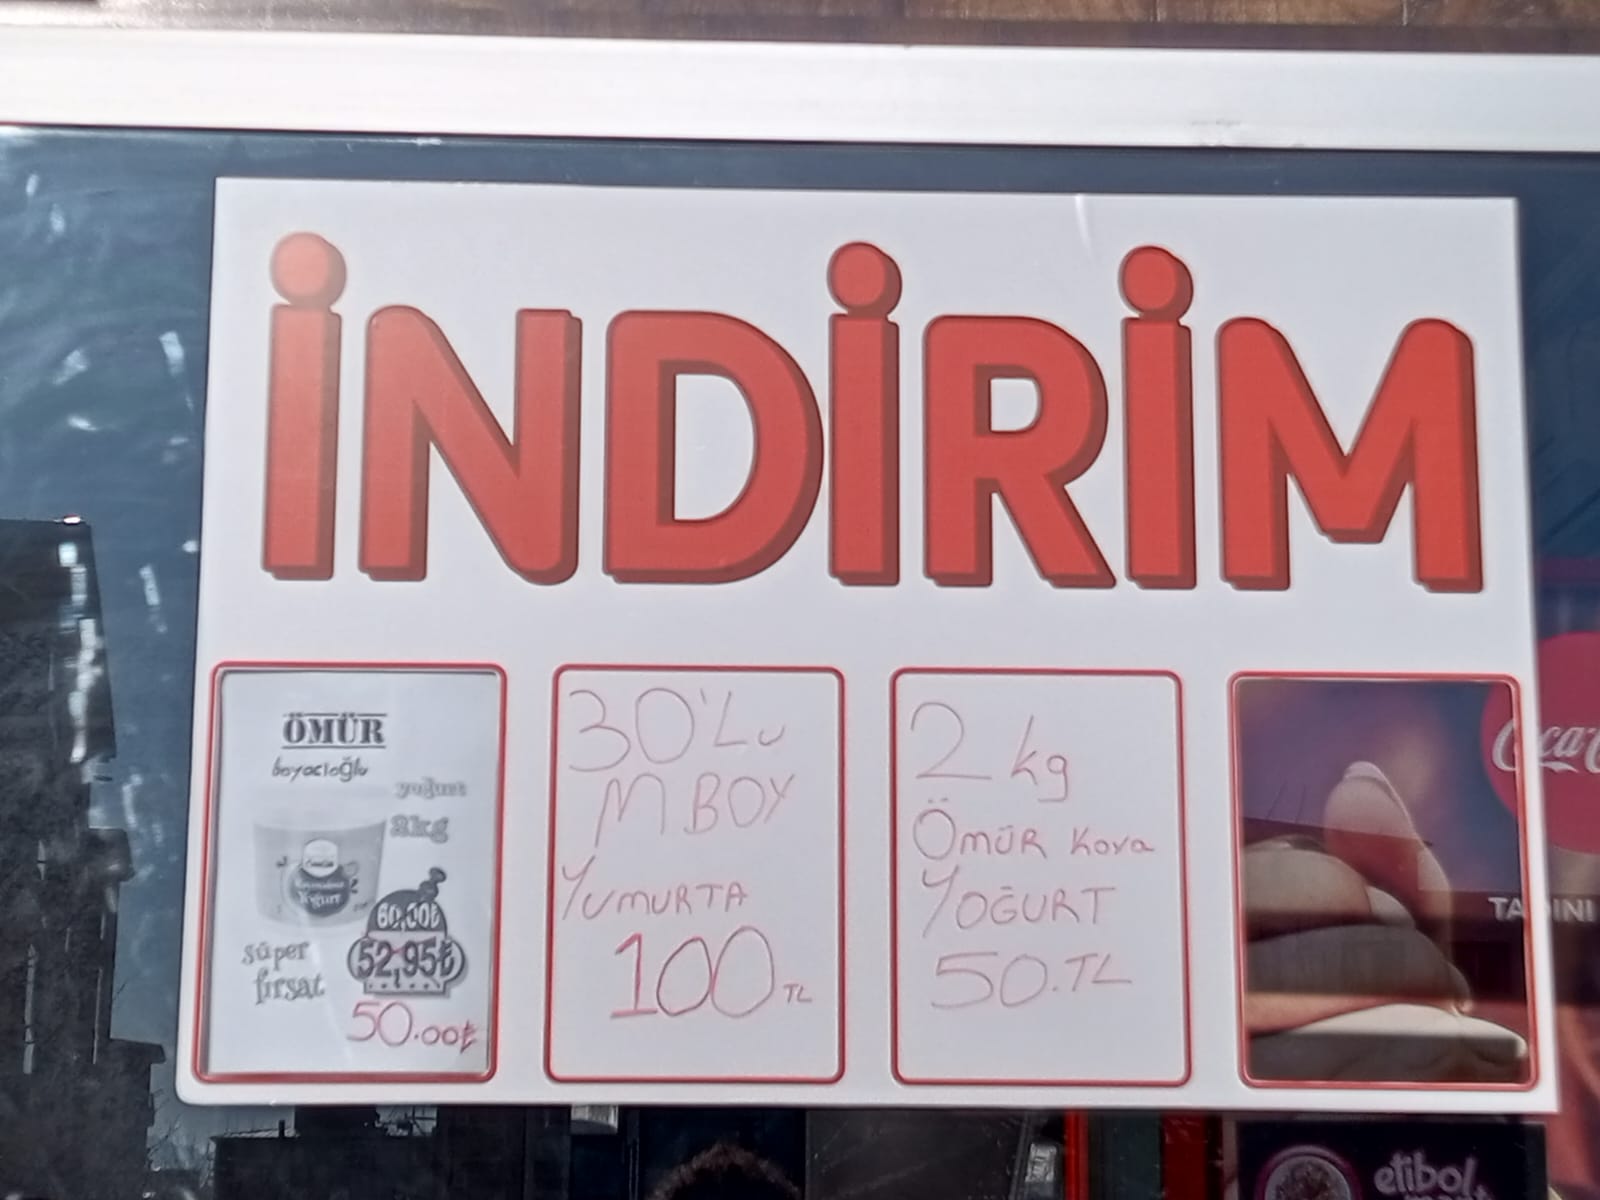 İNDİRİM
ÖMÜR
boyacıoğlu
yoğurt
2kg
Yoğurt
60,00₺
52,95₺
süper
fırsat
50.00₺
30'Lu
M BOY
YUMURTA
100 TL
2 kg
ÖMÜR Kova
YOĞURT
50.TL
Coca-C
TADINI
etibol